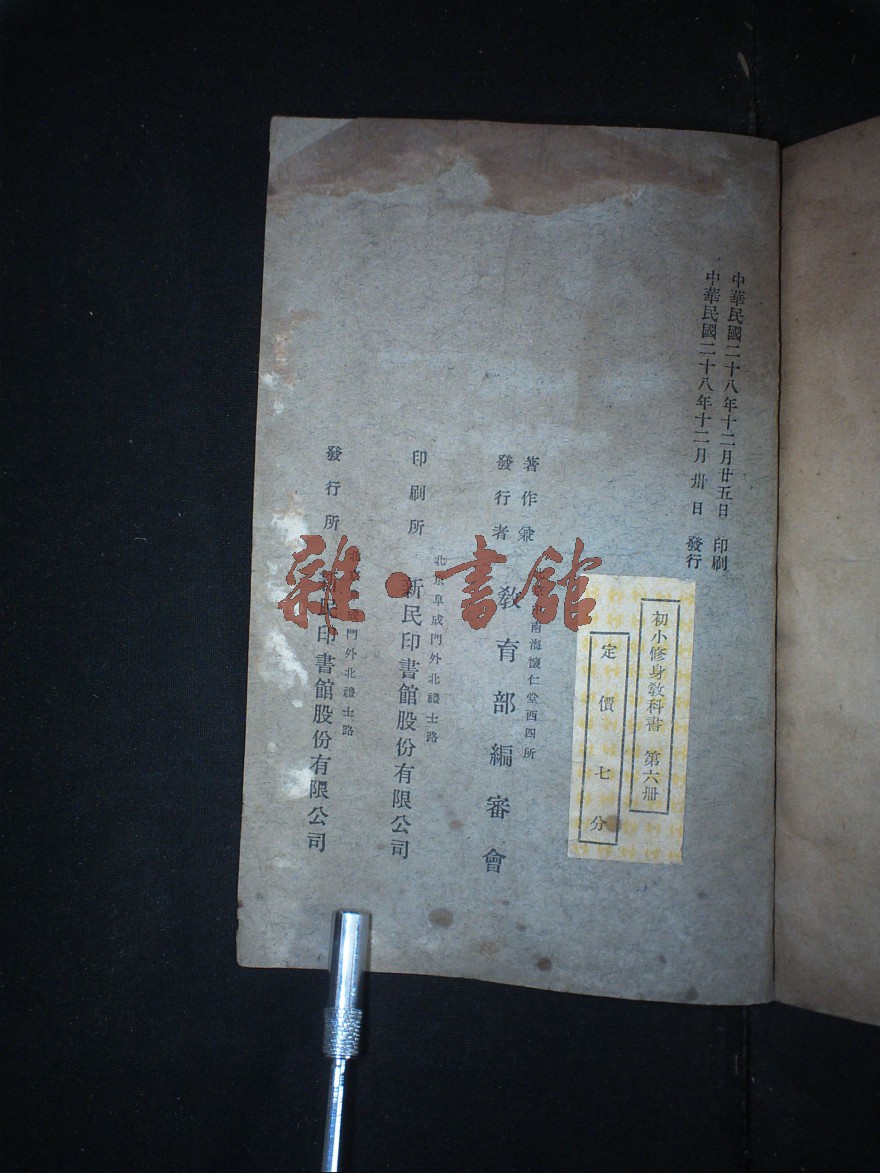 中華民國二十八年十二月廿五日 印刷
中華民國二十八年十二月卅日 發行
初小修身教科書 第六冊
定價七分
著作兼
發行者
南海懷仁堂西四所
教育部編審會
印刷所
北京阜成門外北禮士路
新民印書館股份有限公司
發行所
門外北禮士路
新民印書館股份有限公司
雜·書館